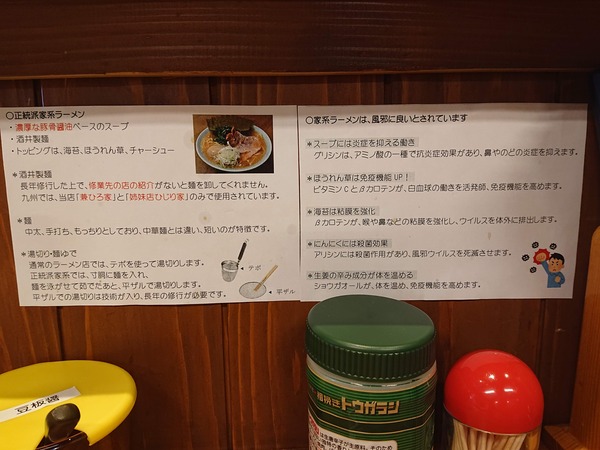 〇正統派家系ラーメン
・濃厚な豚骨醤油ベースのスープ
・酒井製麺
・トッピングは、海苔、ほうれん草、チャーシュー
*酒井製麺
長年修行した上で、修業先の店の紹介がないと麺を卸してくれません。
九州では、当店「兼ひろ家」と「姉妹店ひじり家」のみで使用されています。
*麺
中太、手打ち、もっちりとしており、中華麺とは違い、短いのが特徴です。
*湯切り・麺ゆで
通常のラーメン店では、テボを使って湯切りします。
正統派家系では、寸胴に麺を入れ、
麺を泳がせて茹でたあと、平ザルで湯切りします。
平ザルでの湯切りは技術が入り、長年の修行が必要です。
◀テボ
◀平ザル
〇家系ラーメンは、風邪に良いとされています
*スープには炎症を抑える働き
グリシンは、アミノ酸の一種で抗炎症効果があり、鼻やのどの炎症を抑えます。
*ほうれん草は免疫機能UP!
ビタミンCとβカロテンが、白血球の働きを活発師、免疫機能を高めます。
*海苔は粘膜を強化
βカロテンが、喉や鼻などの粘膜を強化し、ウイルスを体外に排出します。
*にんにくには殺菌効果
アリシンには殺菌作用があり、風邪ウイルスを死滅させます。
*生姜の辛み成分が体を温める
ショウガオールが、体を温め、免疫機能を高めます。
豆板醤
粗挽きトウガラシ